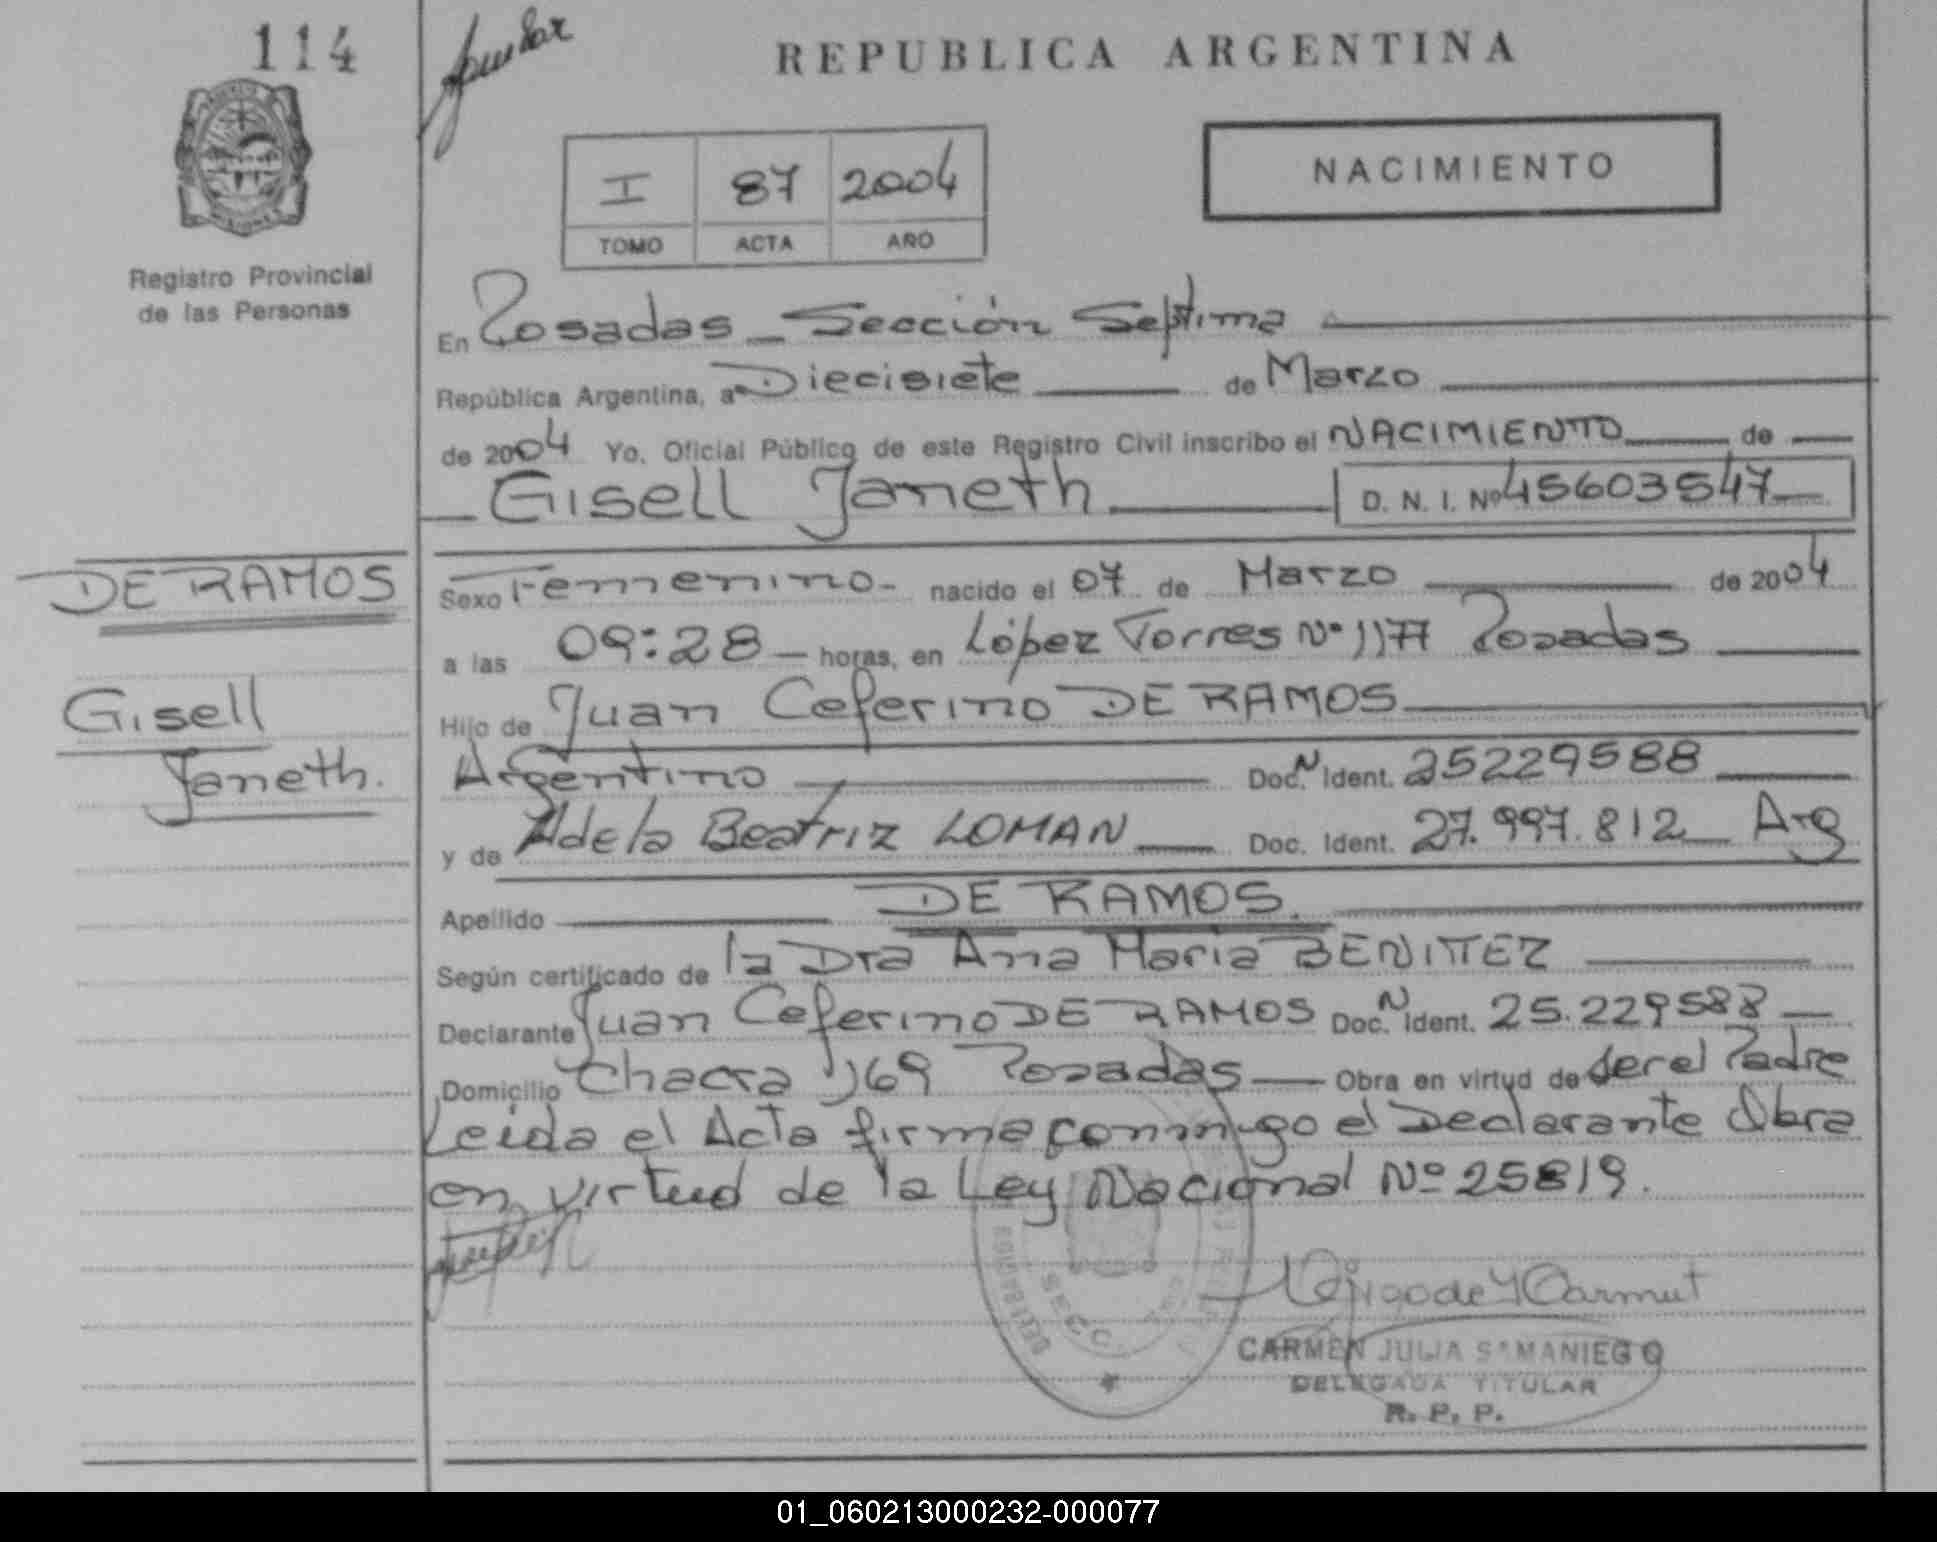 114
REPUBLICA ARGENTINA
NACIMIENTO
I 87 2004
TOMO ACTA AÑO
Registro Provincial
de las Personas
En Posadas - Sección Septima
República Argentina, a Diecisiete de Marzo
de 2004 Yo, Oficial Público de este Registro Civil inscribo el NACIMIENTO de
Gisell Janeth D. N. I. Nº 45603547
DE RAMOS
Gisell
Janeth.
Sexo Femenino - nacido el 07 de Marzo de 2004
a las 09:28 - horas, en López Torres Nº 1177 Posadas
Hijo de Juan Ceferino DE RAMOS
Argentino Doc. N Ident. 25229588
y de Adela Beatriz LOMAN Doc. Ident. 27.997.812 Arg
Apellido DE RAMOS.
Según certificado de la Dra Ana Maria BENITEZ
Declarante Juan Ceferino DE RAMOS Doc. N Ident. 25.229588
Domicilio Chacra 169 Posadas Obra en virtud de ser el Padre
Leida el Acta firma conmigo el Declarante Obra
en virtud de la Ley Nacional Nº 25819.
CARMEN JULIA SAMANIEGO
DELEGADA TITULAR
R. P. P.
01_060213000232-000077